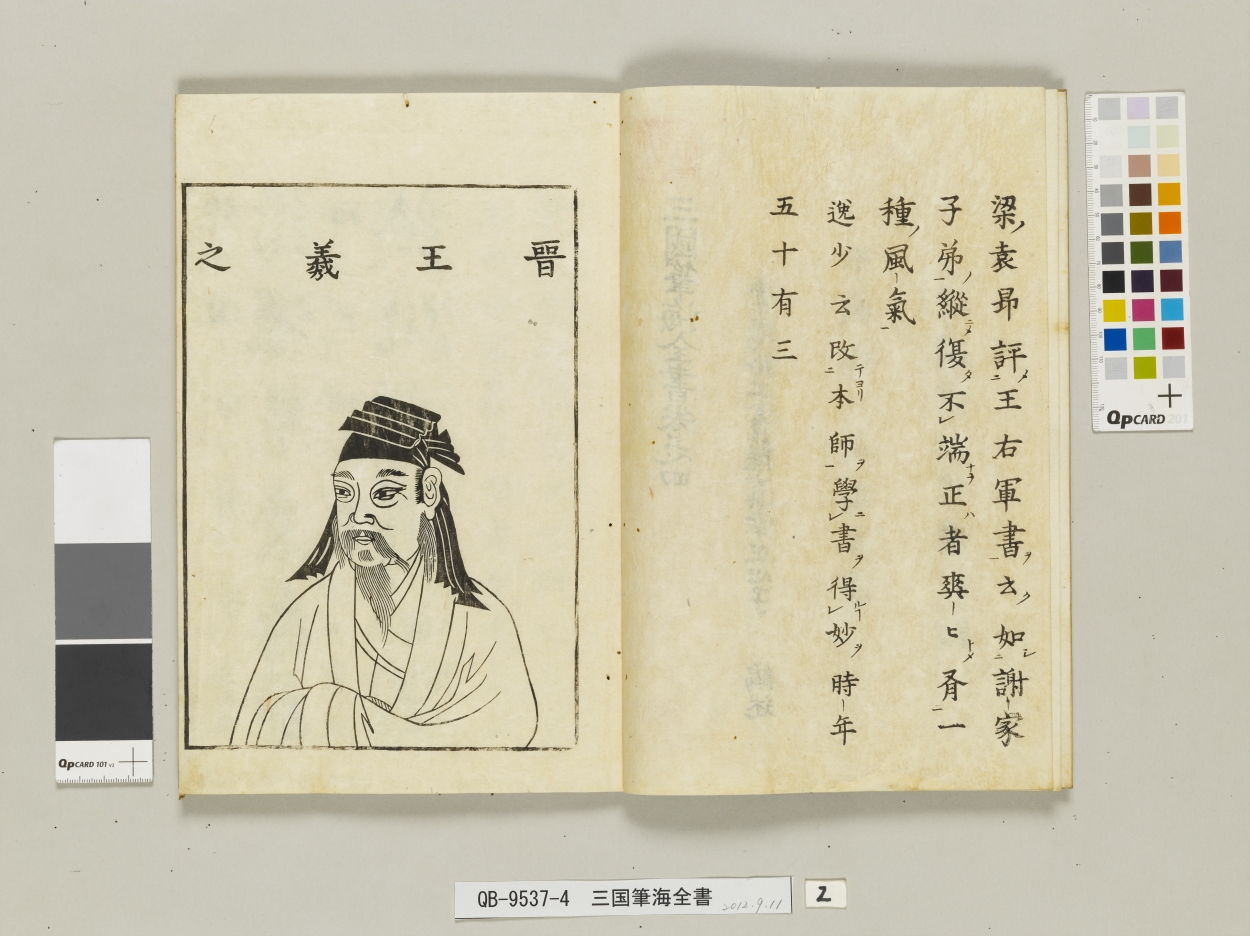 梁袁昻評王右軍書云如謝家
子弟縱復不端正者爽〻有一
種風氣
逸少云改本師學書得妙時年
五十有三
晉王羲之
QPCARD 201
QPCARD 101 v2
QB-9537-4 三国筆海全書 2012.9.11
2